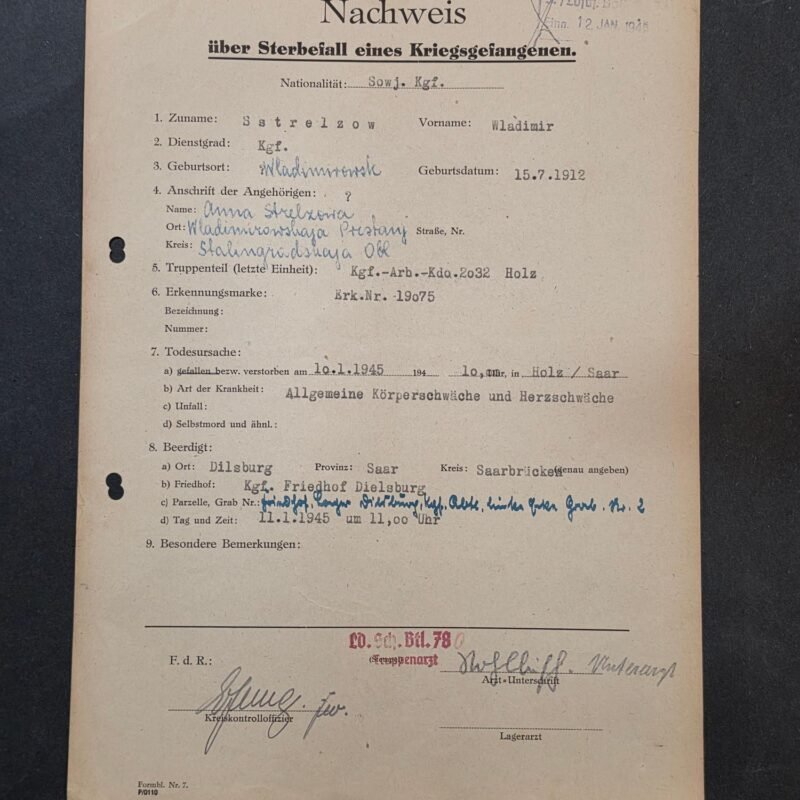 Nachweis
Einn. 12 JAN. 1945
über Sterbefall eines Kriegsgefangenen.
Nationalität: Sowj. Kgf.
1. Zuname: Sstrelzow Vorname: Wladimir
2. Dienstgrad: Kgf.
3. Geburtsort: Wladimirowsk Geburtsdatum: 15.7.1912
4. Anschrift der Angehörigen: ?
Name: Anna Strelzowa
Ort: Wladimirowskaja Pristanj Straße, Nr.
Kreis: Stalingradskaja Obl
5. Truppenteil (letzte Einheit): Kgf.-Arb.-Kdo.2o32 Holz
6. Erkennungsmarke: Erk.Nr. 19o75
Bezeichnung:
Nummer:
7. Todesursache:
a) gefallen bezw. verstorben am 1o.1.1945 194 1o,oo Uhr, in Holz / Saar
b) Art der Krankheit: Allgemeine Körperschwäche und Herzschwäche
c) Unfall:
d) Selbstmord und ähnl.:
8. Beerdigt:
a) Ort: Dilsburg Provinz: Saar Kreis: Saarbrücken (genau angeben)
b) Friedhof: Kgf. Friedhof Dielsburg
c) Parzelle, Grab Nr.: Friedhof, Lager Dilsburg, Kgf. Abtl. linke Ecke Grab. Nr. 2
d) Tag und Zeit: 11.1.1945 um 11,oo Uhr
9. Besondere Bemerkungen:
Ld. Sch. Btl. 780
F. d. R.: Truppenarzt Unterarzt
Arzt-Unterschrift
Kreiskontrolloffizier
Lagerarzt
Formbl. Nr. 7.
P/0110